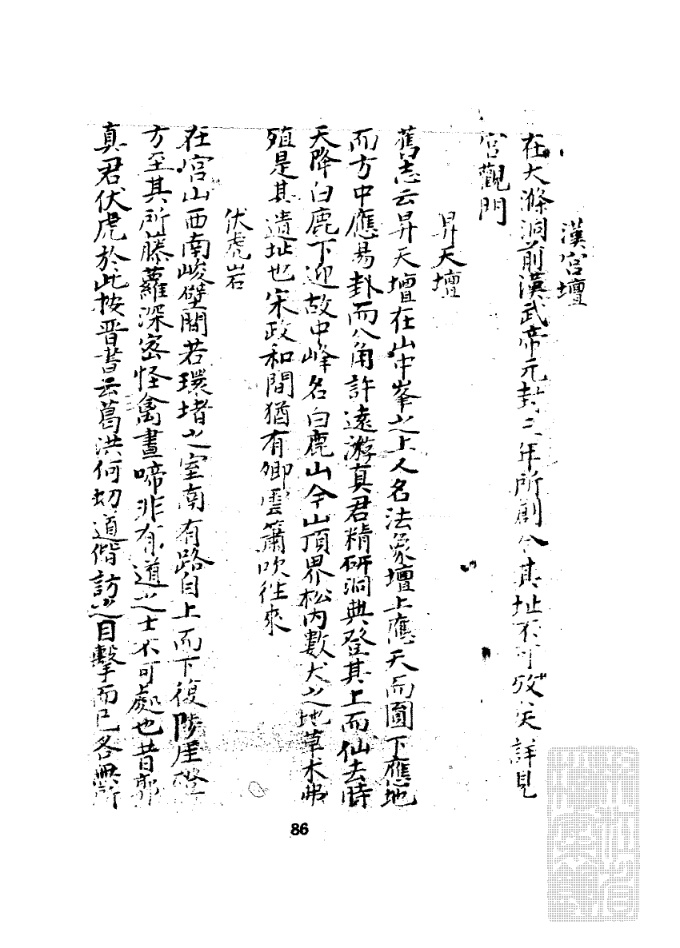 漢宮壇
在大滌洞前漢武帝元封三年所創今其址不可攷矣詳見
宮觀門
昇天壇
舊志云昇天壇在山中峯之上人名法象壇上應天而圓下應地
而方中應易卦而八角許遠游真君精研洞典登其上而仙去時
天降白鹿下迎故中峰名白鹿山今山頂界松內數丈之地草木弗
殖是其遺址也宋政和間猶有卿雲簫吹往來
伏虎岩
在宮山西南峻壁間若環堵之室南有路自上而下復陟崖磴
方至其所藤蘿深密怪禽晝啼非有道之士不可處也昔郭
真君伏虎於此按晉書云葛洪何幼道偕訪之目擊而已各無所
86